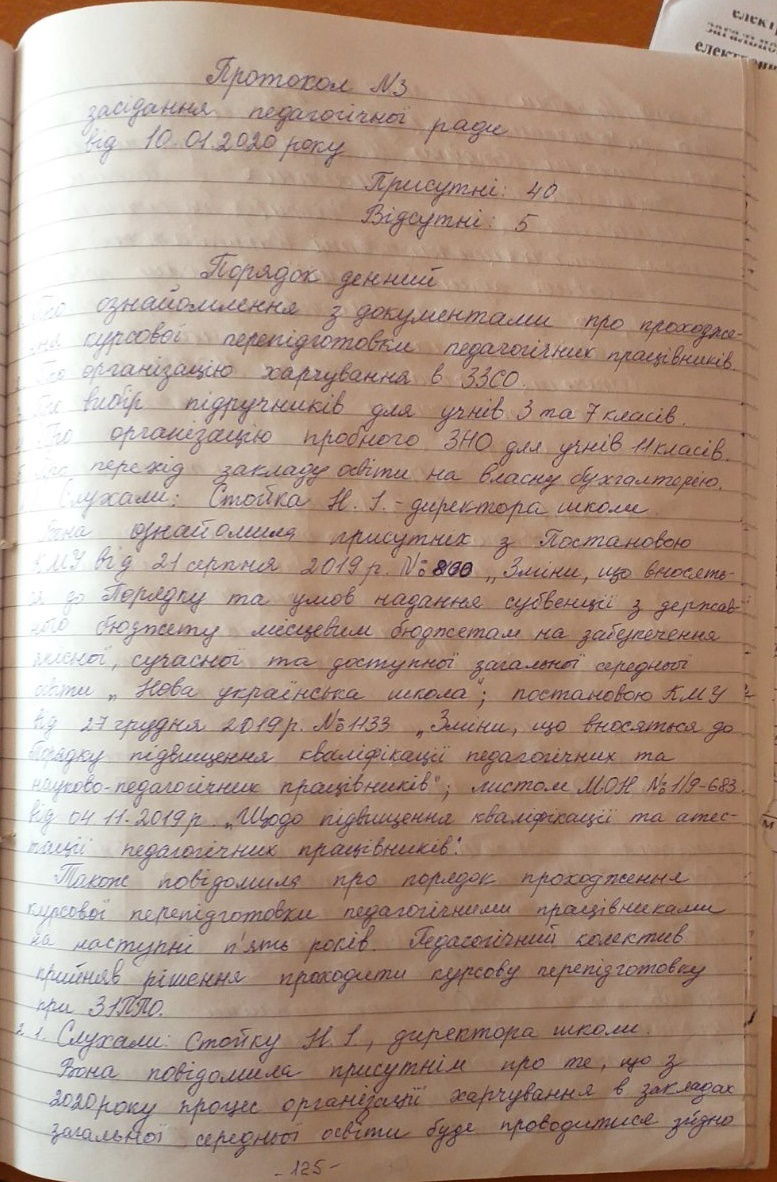 електр
загально
електронн
Протокол №3
засідання педагогічної ради
від 10.01.2020 року
Присутні: 40
Відсутні: 5
Порядок денний
Про ознайомлення з документами про проходже-
ння курсової перепідготовки педагогічних працівників.
Про організацію харчування в ЗЗСО.
Про вибір підручників для учнів 3 та 7 класів.
Про організацію пробного ЗНО для учнів 11 класів.
5. Про перехід закладу освіти на власну бухгалтерію.
Слухали: Стойка Н. І. - директора школи.
Вона ознайомила присутніх з Постановою
КМУ від 21 серпня 2019 р. № 800 „Зміни, що вносять-
ся до Порядку та умов надання субвенції з держав-
ного бюджету місцевим бюджетам на забезпечення
якісної, сучасної та доступної загальної середньої
освіти „Нова українська школа"; постановою КМУ
від 27 грудня 2019 р. № 1133 „Зміни, що вносяться до
Порядку підвищення кваліфікації педагогічних та
науково-педагогічних працівників"; листом МОН № 1/9-683
від 04 11.2019 р „Щодо підвищення кваліфікації та атес-
тації педагогічних працівників".
Також повідомила про порядок проходження
курсової перепідготовки педагогічними працівниками
на наступні п'ять років. Педагогічний колектив
прийняв рішення проходити курсову перепідготовку
при ЗІППО.
2. 1. Слухали: Стойку Н. І., директора школи.
Вона повідомила присутнім про те, що з
2020 року процес організації харчування в закладах
загальної середньої освіти буде проводитися згідно
-125-